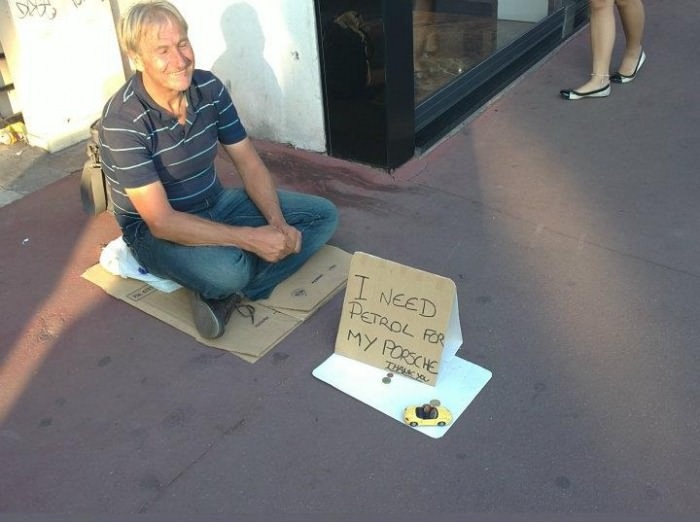 I NEED
PETROL FOR
MY PORSCHE
THANK YOU